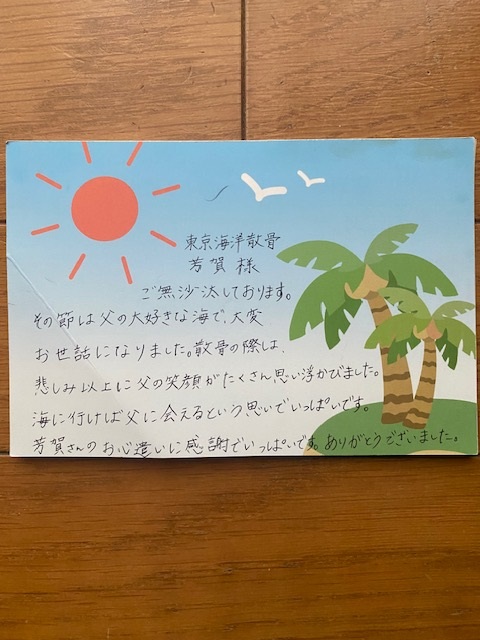 東京海洋散骨
芳賀 様
ご無沙汰しております。
その節は父の大好きな海で、大変
お世話になりました。散骨の際は、
悲しみ以上に父の笑顔がたくさん思い浮かびました。
海に行けば父に会えるという思いでいっぱいです。
芳賀さんのお心遣いに感謝でいっぱいです。ありがとうございました。